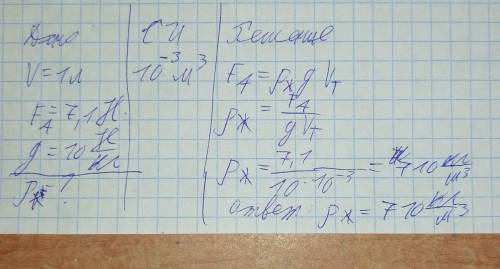 Дано
V = 1л
F_A = 7,1 Н.
g = 10 Н/кг
ρж = ?
СИ
10⁻³ м³
Решение
F_A = ρж g Vт
ρж = F_A / g Vт
ρж = 7,1 / 10 · 10⁻³ = 710 кг/м³
ответ: ρж = 710 кг/м³